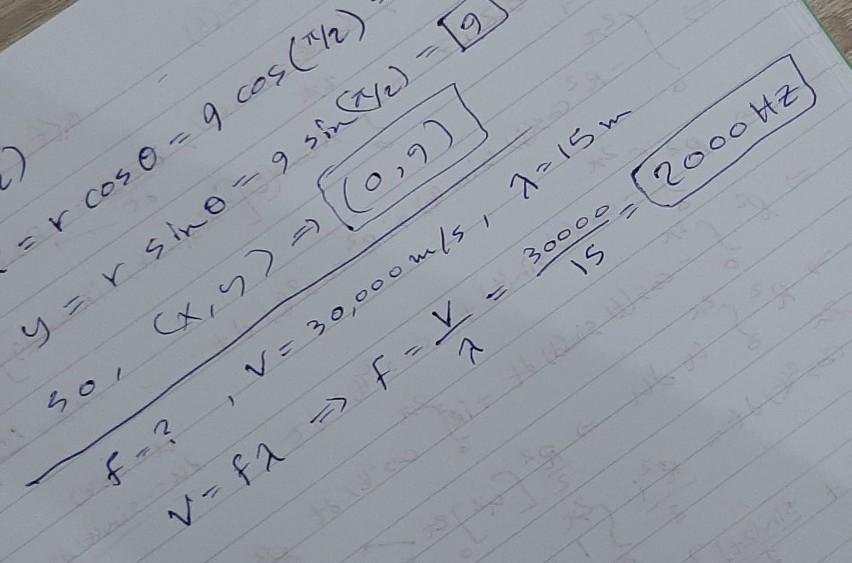 = r cosθ = 9 cos(π/2)
y = r sinθ = 9 sin(π/2) = 9
so, (x,y) ⇒ (0,9)
f=? , v = 30,000 m/s, λ=15 m
v = fλ ⇒ f = v/λ = 30000/15 = 2000 Hz